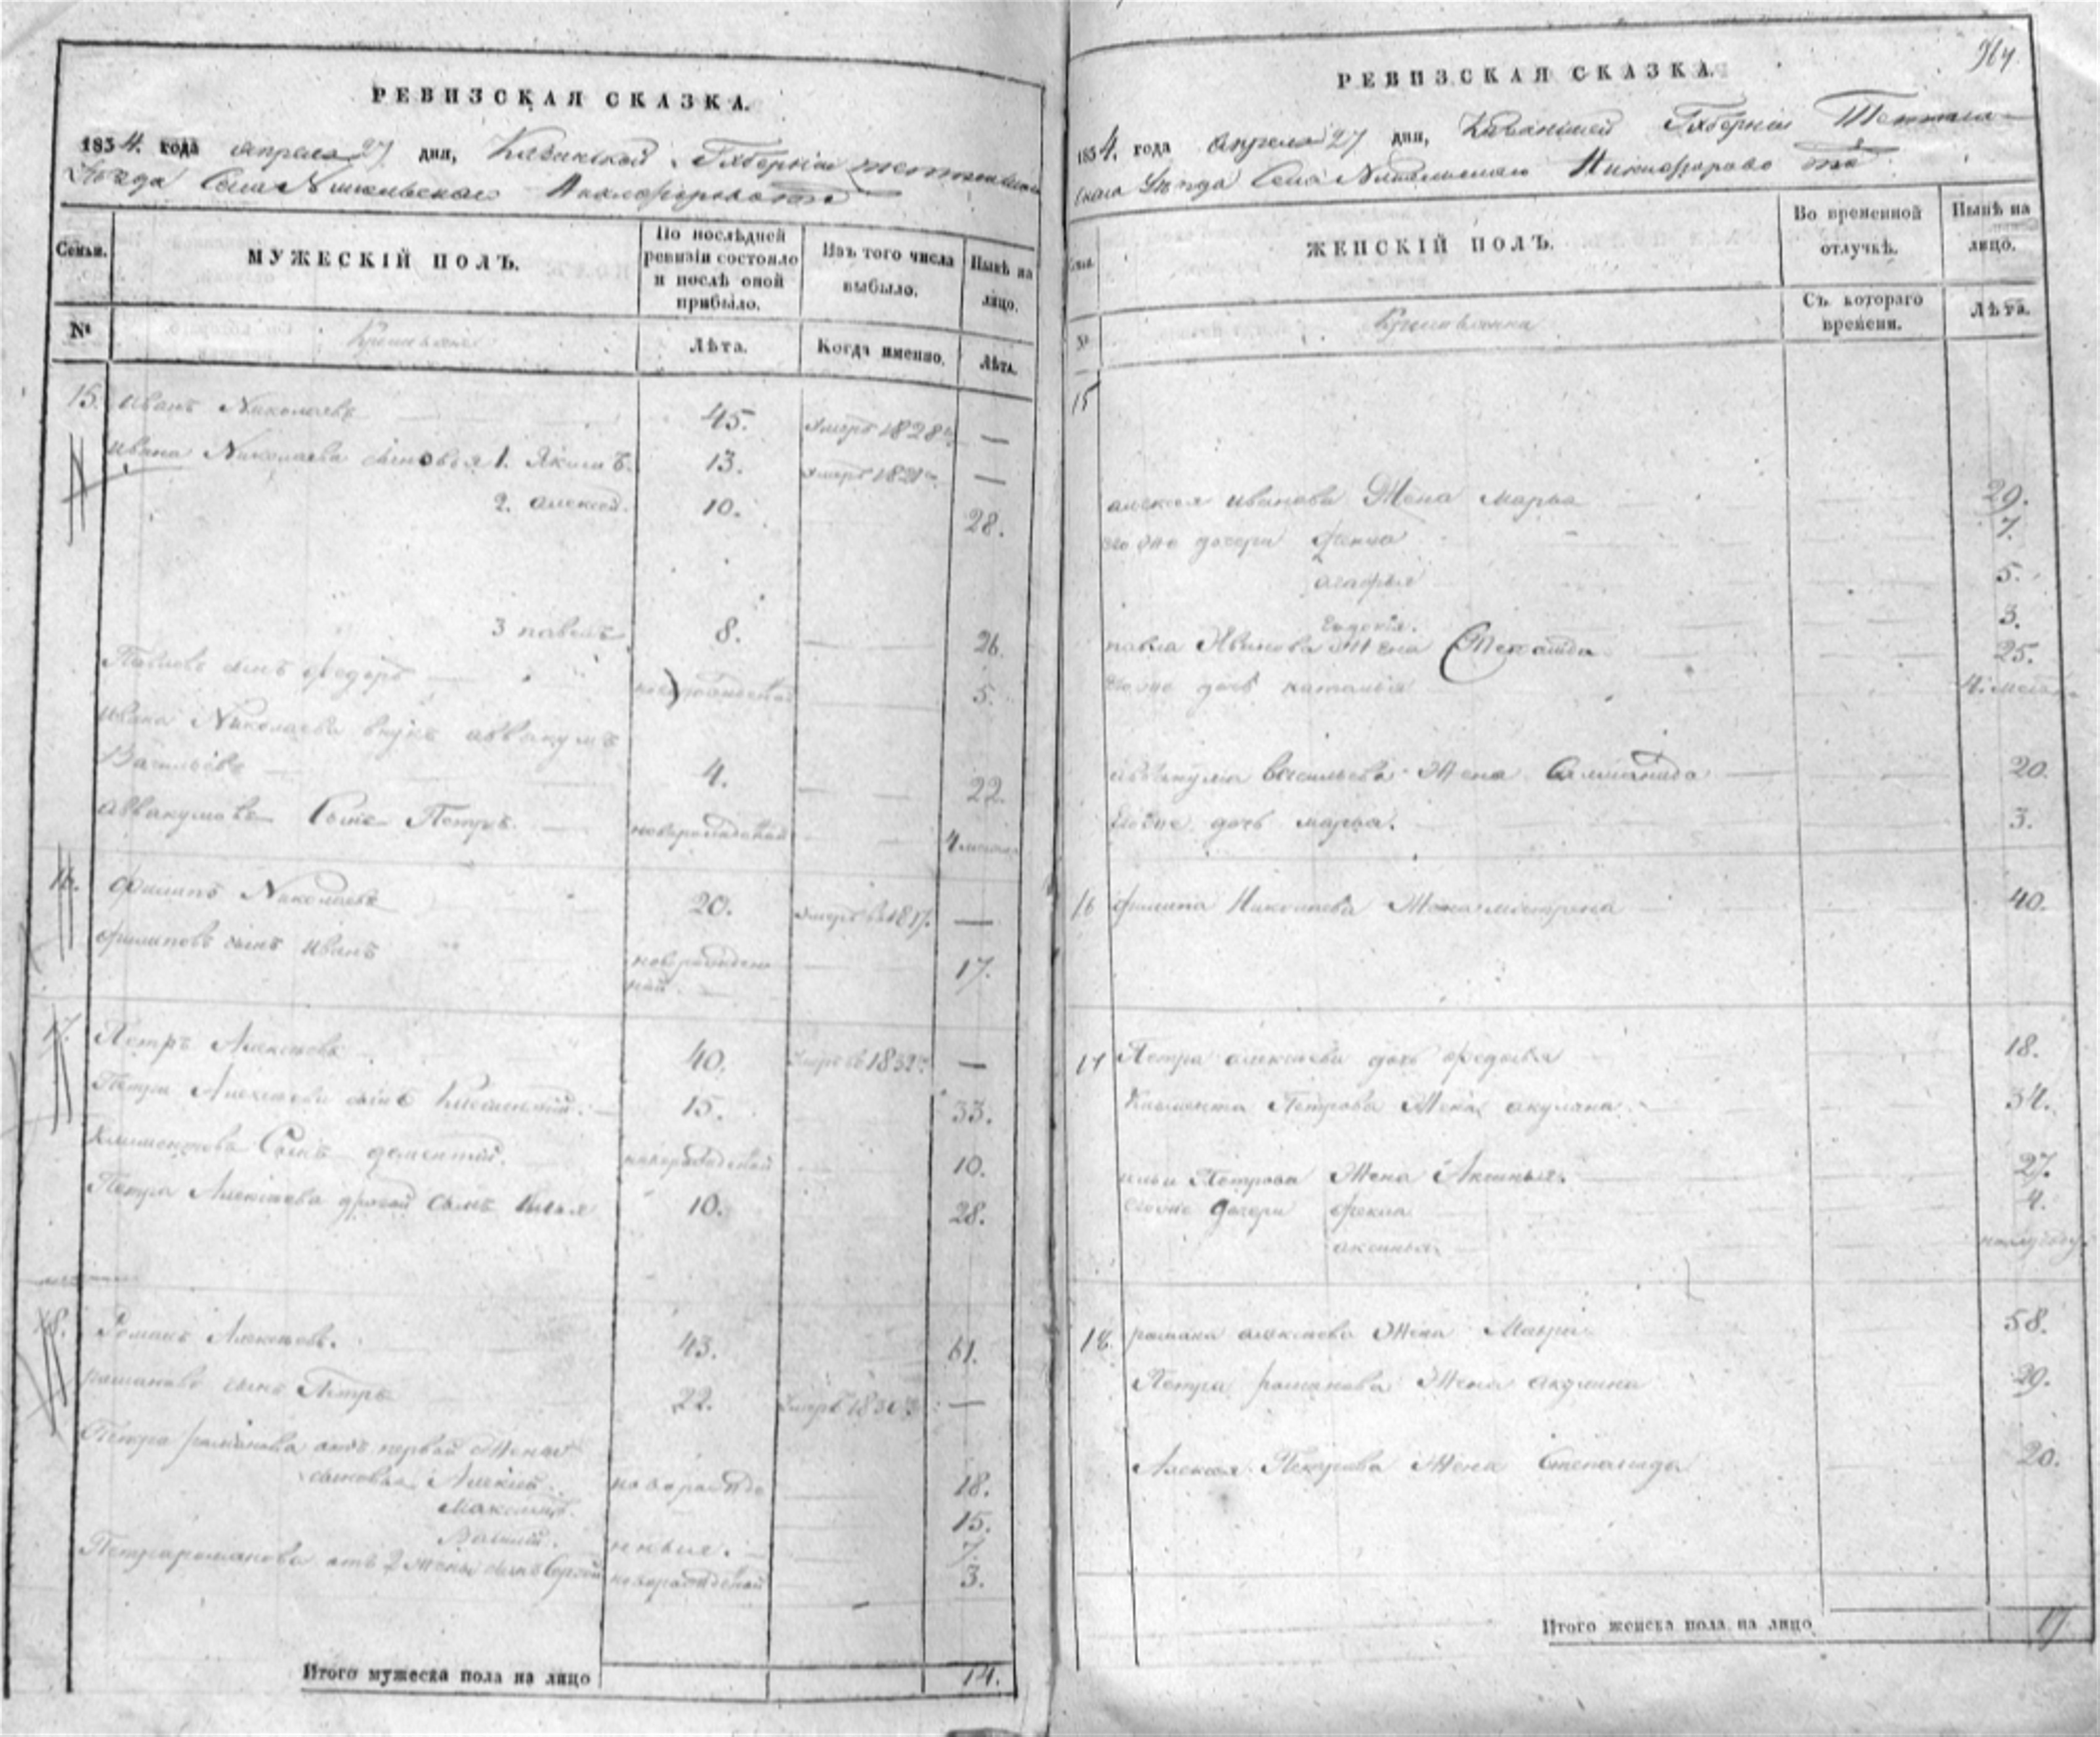 РЕВИЗСКАЯ СКАЗКА.
1834. года апреля 27 дня, Казанской Губернии
Уезда Села Никольскаго
Семьи.
МУЖЕСКІЙ ПОЛЪ.
По послѣдней ревизіи состояло и послѣ оной прибыло.
Изъ того числа выбыло.
Нынѣ на лицо.
№
Лѣта.
Когда именно.
Лѣта.
15. иванъ Николаевъ 45. умеръ 1828 —
ивана Николаева сыновья 1. Якимъ. 13. умеръ 1821 —
2. алексей. 10. 28.
3 павелъ 8. 26.
Павловъ сынъ федоръ новорожденной 5.
ивана Николаева внукъ аввакумъ
Васильевъ 4. 22.
аввакумовъ Сынъ Петръ. новорожденной 4 месяца
16. филипъ Николаевъ 20. умеръ въ 1817. —
филиповъ сынъ иванъ новорожден
ной. 17.
17. Петръ Алексеевъ 40. умеръ въ 1832 —
Петра Алексеева сынъ Климентий. 15. 33.
Климентова Сынъ дементий. новорожденной 10.
Петра Алексеева другой сынъ Илья 10. 28.
18. Романъ Алексеевъ. 43. 61.
романовъ сынъ Петръ 22. умеръ —
Петра романова отъ первой жены
сыновья Алексей новорожде 18.
Максимъ. 15.
Василий. нные. 7.
Петра романова отъ 2 жены сынъ Сергей новорожденной 3.
Итого мужеска пола на лицо 14.
РЕВИЗСКАЯ СКАЗКА.
1834. года апреля 27 дня, Казанской Губернии
скаго Уезда Села Никольскаго
Семьи.
ЖЕНСКІЙ ПОЛЪ.
Во временной отлучкѣ.
Нынѣ на лицо.
№
Съ котораго времени.
Лѣта.
15
алексея иванова Жена Марья 29.
его же дочери фекла 7.
агафья 5.
3.
павла Иванова Жена 25.
его же дочь наталья 4. меся
аввакума васильева Жена 20.
его же дочь марья. 3.
16 филипа Николаева Жена матрена 40.
17 Петра алексеева дочь федосья 18.
Климента Петрова Жена акулина 34.
ильи Петрова Жена Аксинья. 27.
его же дочери фекла 4.
аксинья полугоду.
18. романа алексеева Жена Мавра 58.
Петра романова Жена акулина 29.
Алексея Петрова Жена Степанида 20.
Итого женска пола на лицо 17.